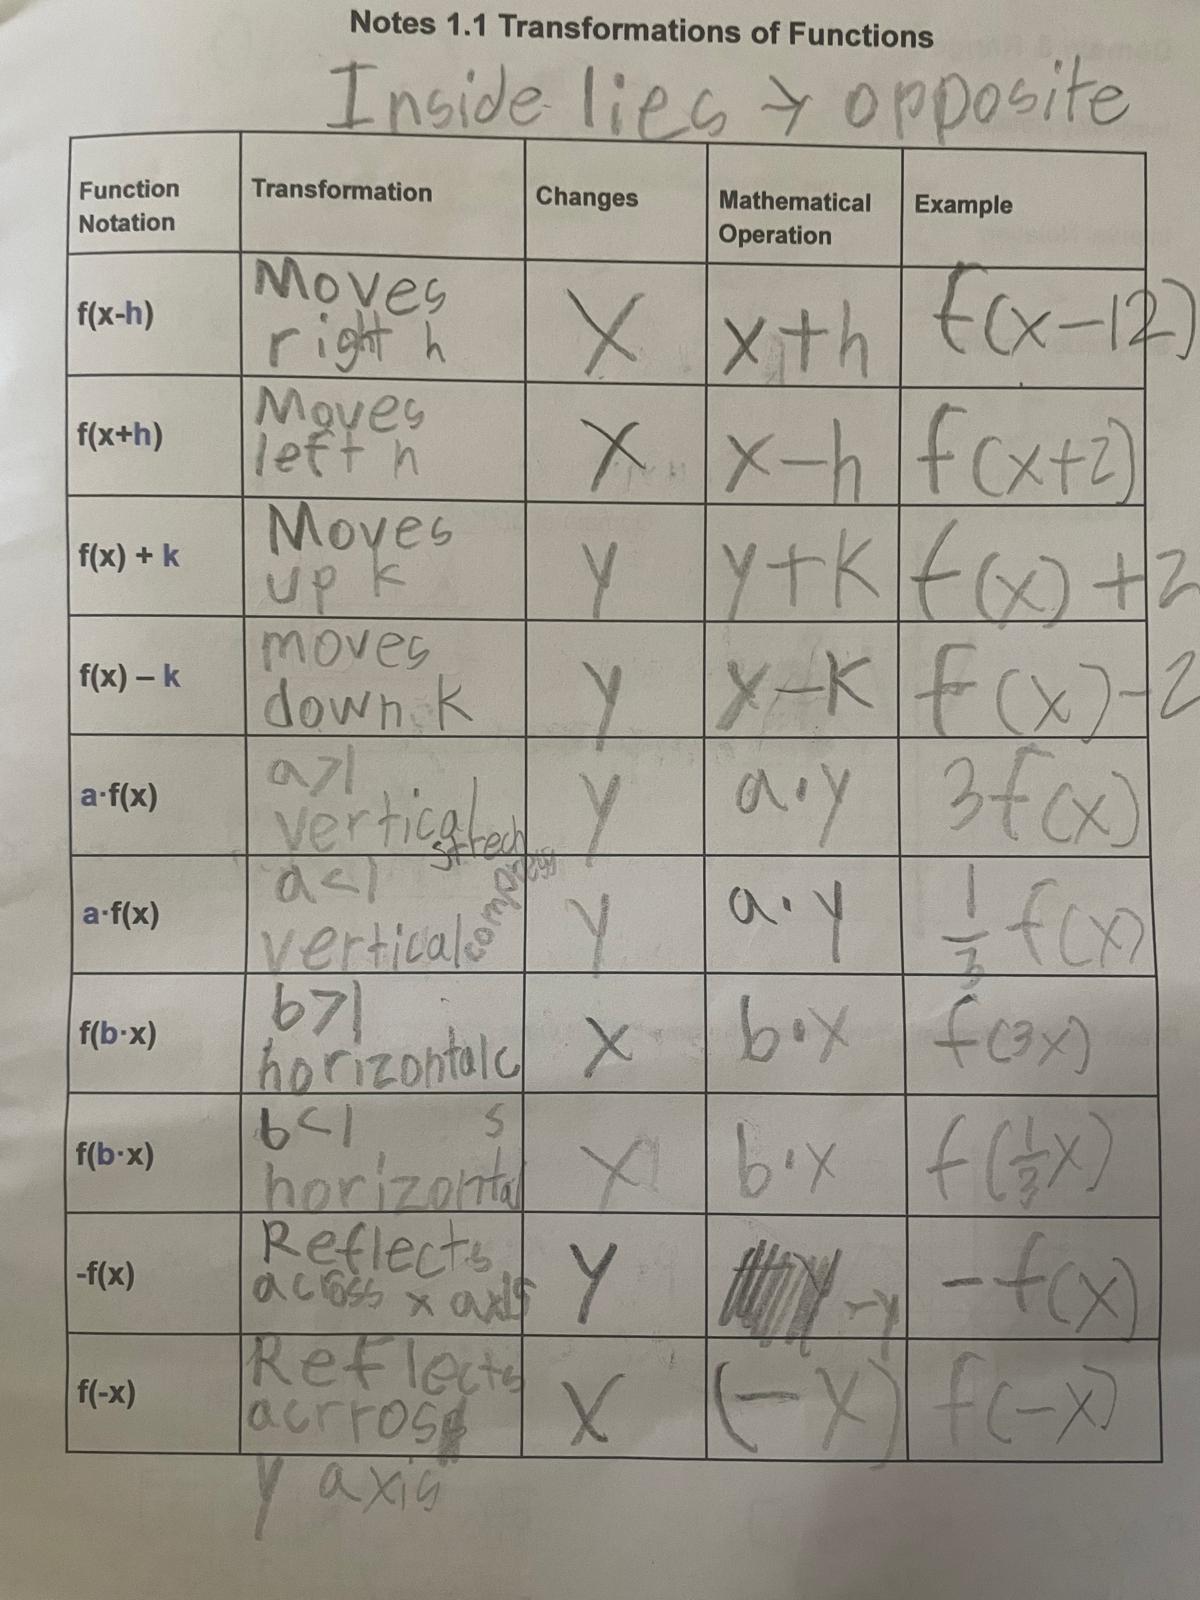 Notes 1.1 Transformations of Functions
Inside lies → opposite
Function Notation
Transformation
Changes
Mathematical Operation
Example
f(x-h)
Moves
right h
X
x+h
f(x-12)
f(x+h)
Moves
left h
X
x-h
f(x+2)
f(x) + k
Moves
up k
y
y+k
f(x)+2
f(x) – k
moves
down k
y
y-k
f(x)-2
a·f(x)
a>1
vertical
strech
y
a·y
3f(x)
a·f(x)
a<1
vertical
compress
y
a·y
1/3 f(x)
f(b·x)
b>1
horizontal c
x
b·x
f(3x)
f(b·x)
b<1 s
horizontal
x
b·x
f(1/3x)
-f(x)
Reflects
across x axis
y
-y
-f(x)
f(-x)
Reflects
acrross
y axis
x
(-x)
f(-x)